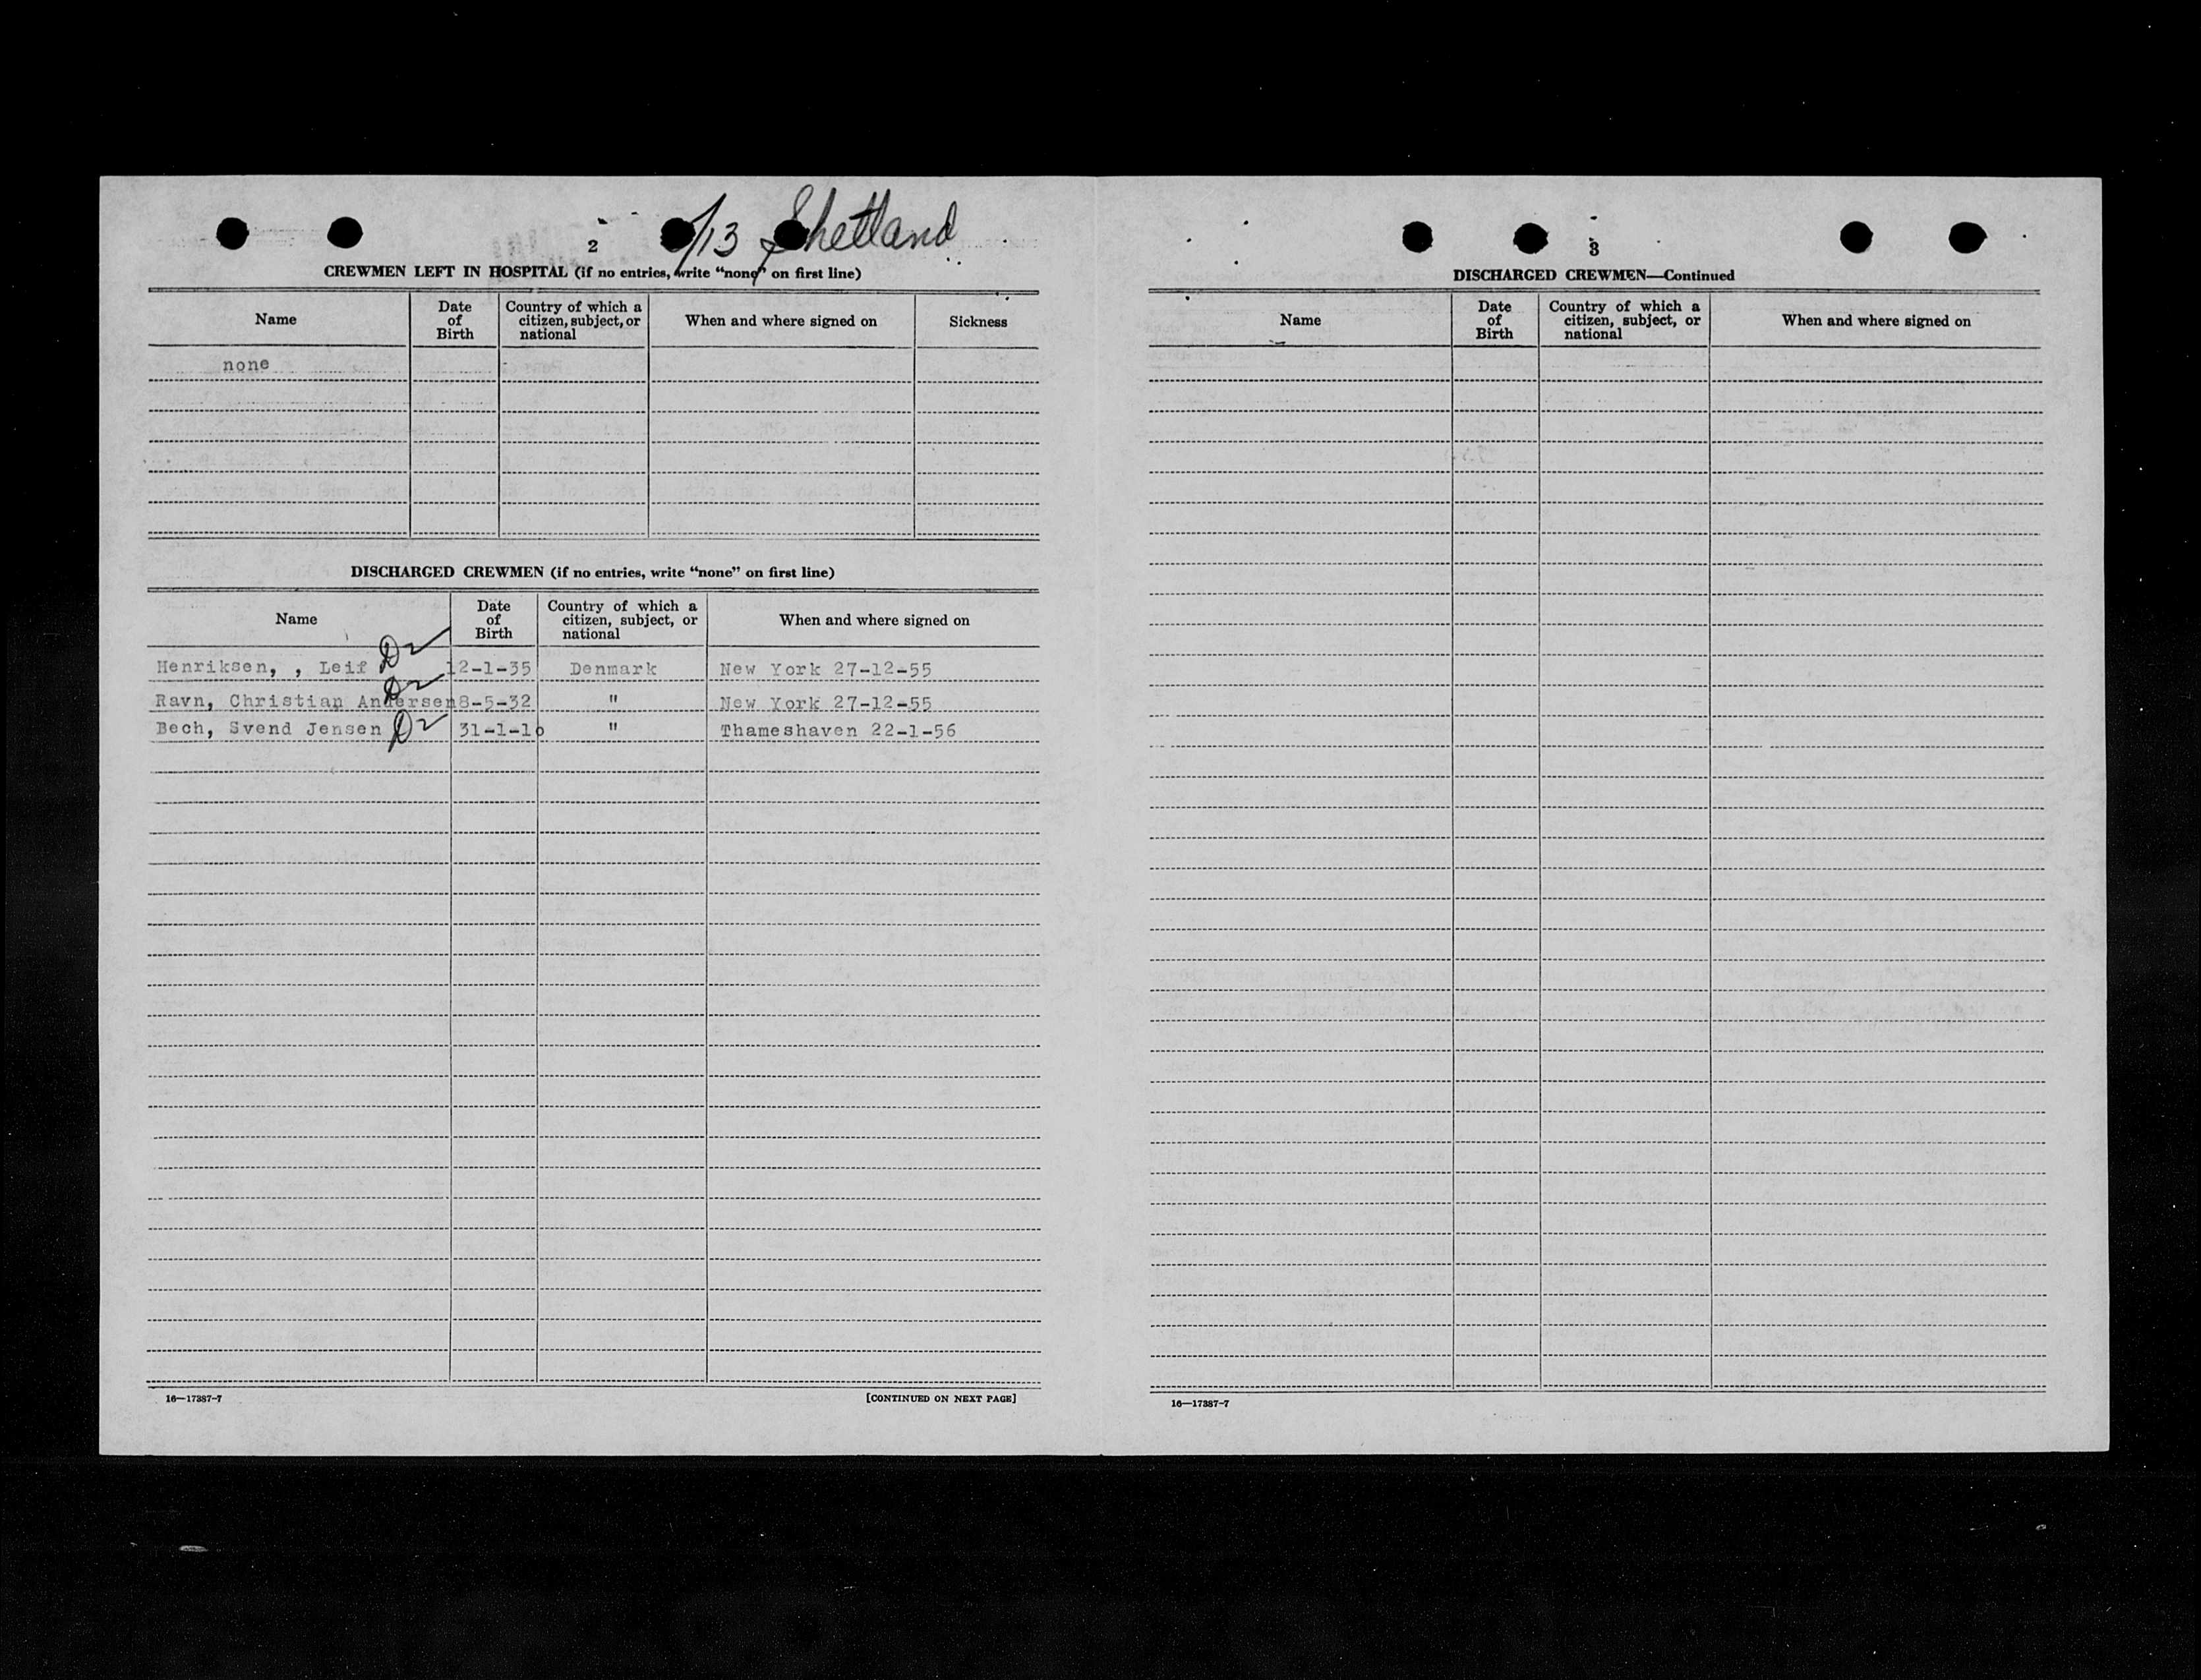 2
/13 Shetland
CREWMEN LEFT IN HOSPITAL (if no entries, write “none” on first line)
Name
Date of Birth
Country of which a citizen, subject, or national
When and where signed on
Sickness
none
DISCHARGED CREWMEN (if no entries, write “none” on first line)
Name
Date of Birth
Country of which a citizen, subject, or national
When and where signed on
Henriksen, , Leif 12-1-35 Denmark New York 27-12-55
Ravn, Christian Andersen 8-5-32 " New York 27-12-55
Bech, Svend Jensen 31-1-10 " Thameshaven 22-1-56
16—17387-7
[CONTINUED ON NEXT PAGE]
3
DISCHARGED CREWMEN—Continued
Name
Date of Birth
Country of which a citizen, subject, or national
When and where signed on
16—17387-7